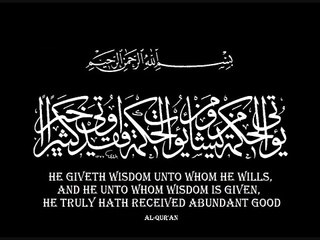 بسم الله الرحمن الرحيم
يؤتي الحكمة من يشاء ومن يؤت الحكمة فقد أوتي خيرا كثيرا
HE GIVETH WISDOM UNTO WHOM HE WILLS,
AND HE UNTO WHOM WISDOM IS GIVEN,
HE TRULY HATH RECEIVED ABUNDANT GOOD
AL-QUR'AN